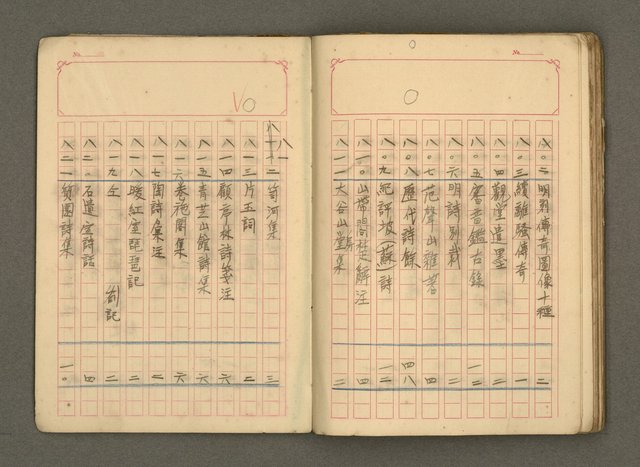 八〇二 明刻傳奇圖像十種 二
八〇三 續離騷傳奇 一
八〇四 觀堂遺墨 二
八〇五 書畫鑑古錄 一二
八〇六 明詩別裁 二
八〇七 范聲山雜著 四
八〇八 歷代詩餘 四八
八〇九 紀評坡(蘇)詩 一二
八一〇 山帶閣楚辭注 四
八一一 大谷山堂集 二
八一二 笥河集 三
八一三 片玉詞 二
八一四 顧亭林詩箋注 六
八一五 青芝山館詩集 六
八一六 卷施閣集 六
八一七 陶詩彙注 二
八一八 暖紅室琵琶記 二
八一九 仝 荊記 二
八二〇 石遺室詩話 四
八二一 質園詩集 一〇
No.
No.